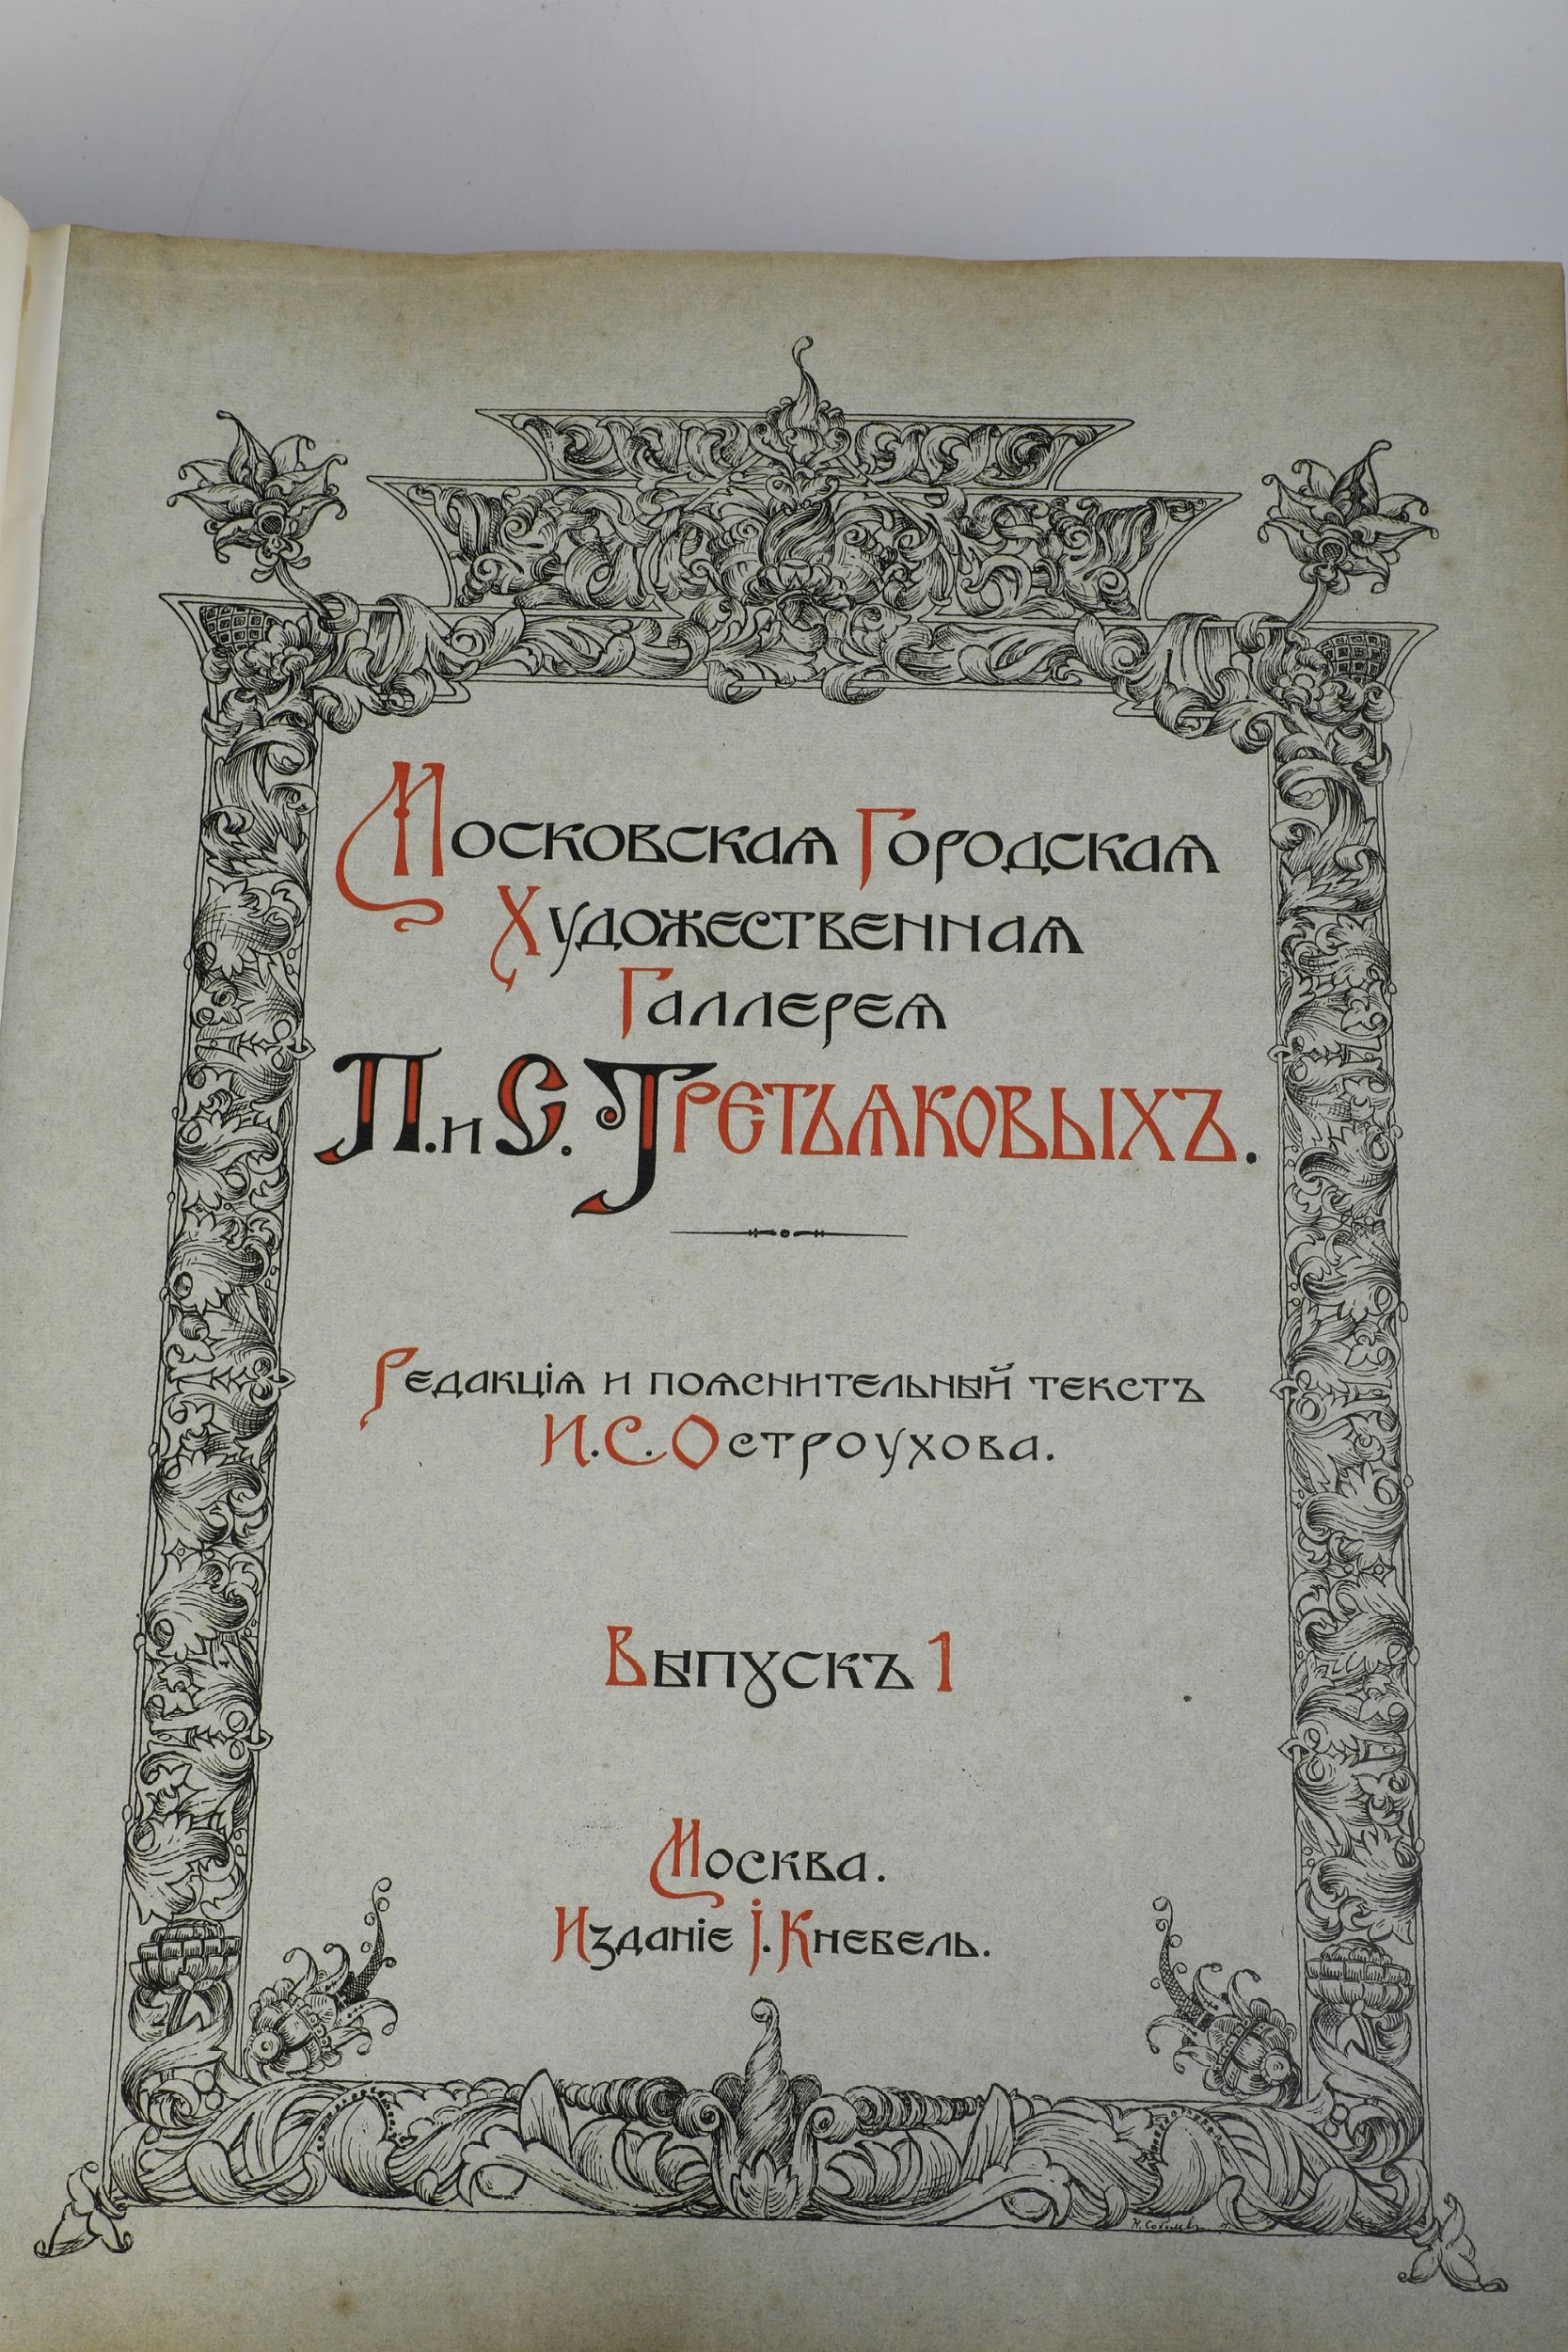 Московская Городская
Художественная
Галлерея
П. и С. Третьяковыхъ.
Редакцiя и пояснительный текстъ
И. С. Остроухова.
Выпускъ 1
Москва.
Изданiе I. Кнебель.